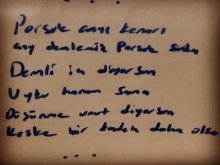 . . .
Porsuk çayı kenarı
çay demlemiş Porsuk
Demli iç diyorsun
Uyku haram sana
Düşünme unut diyorsun
Keşke bir bardak daha olsa
. . .